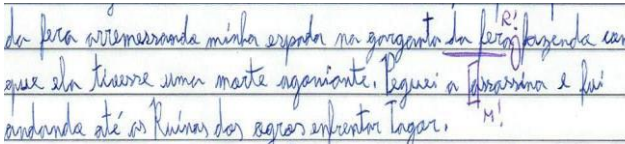 da fera arremessando minha espada na garganta da fera, fazendo com
que ela tivesse uma morte agoniante. Peguei a assassina e fui
andando até as Ruínas dos ogros enfrentar Tagar.
R!
M!